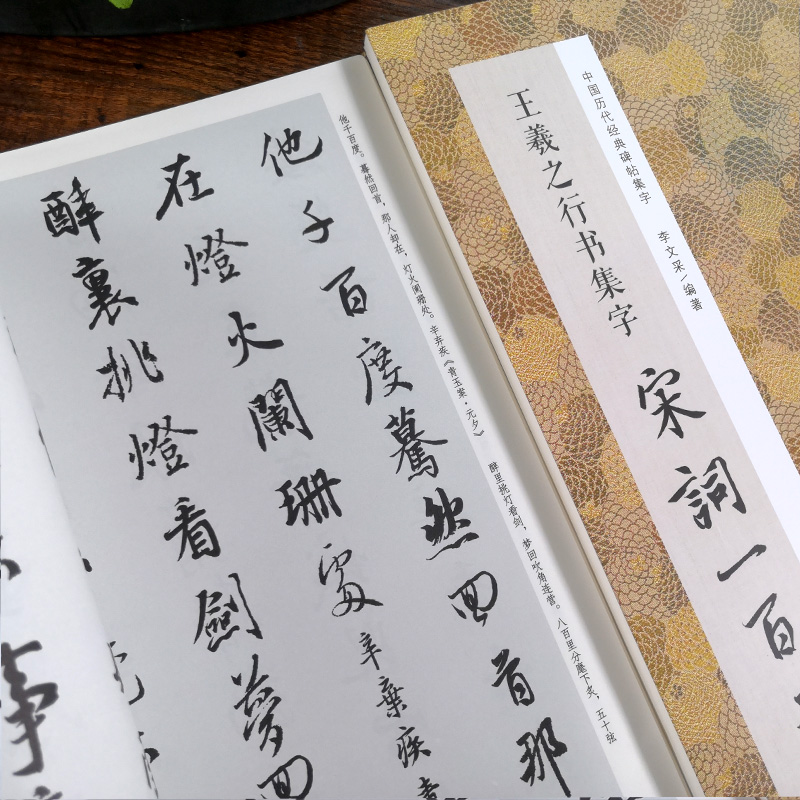 他千百度驀然回首那
在燈火闌珊處辛棄疾青
醉裏挑燈看劍夢回
事
他千百度。蓦然回首，那人却在，灯火阑珊处。辛弃疾《青玉案·元夕》
醉里挑灯看剑，梦回吹角连营。八百里分麾下炙，五十弦
中国历代经典碑帖集字
李文采/编著
王羲之行书集字
宋詞一百